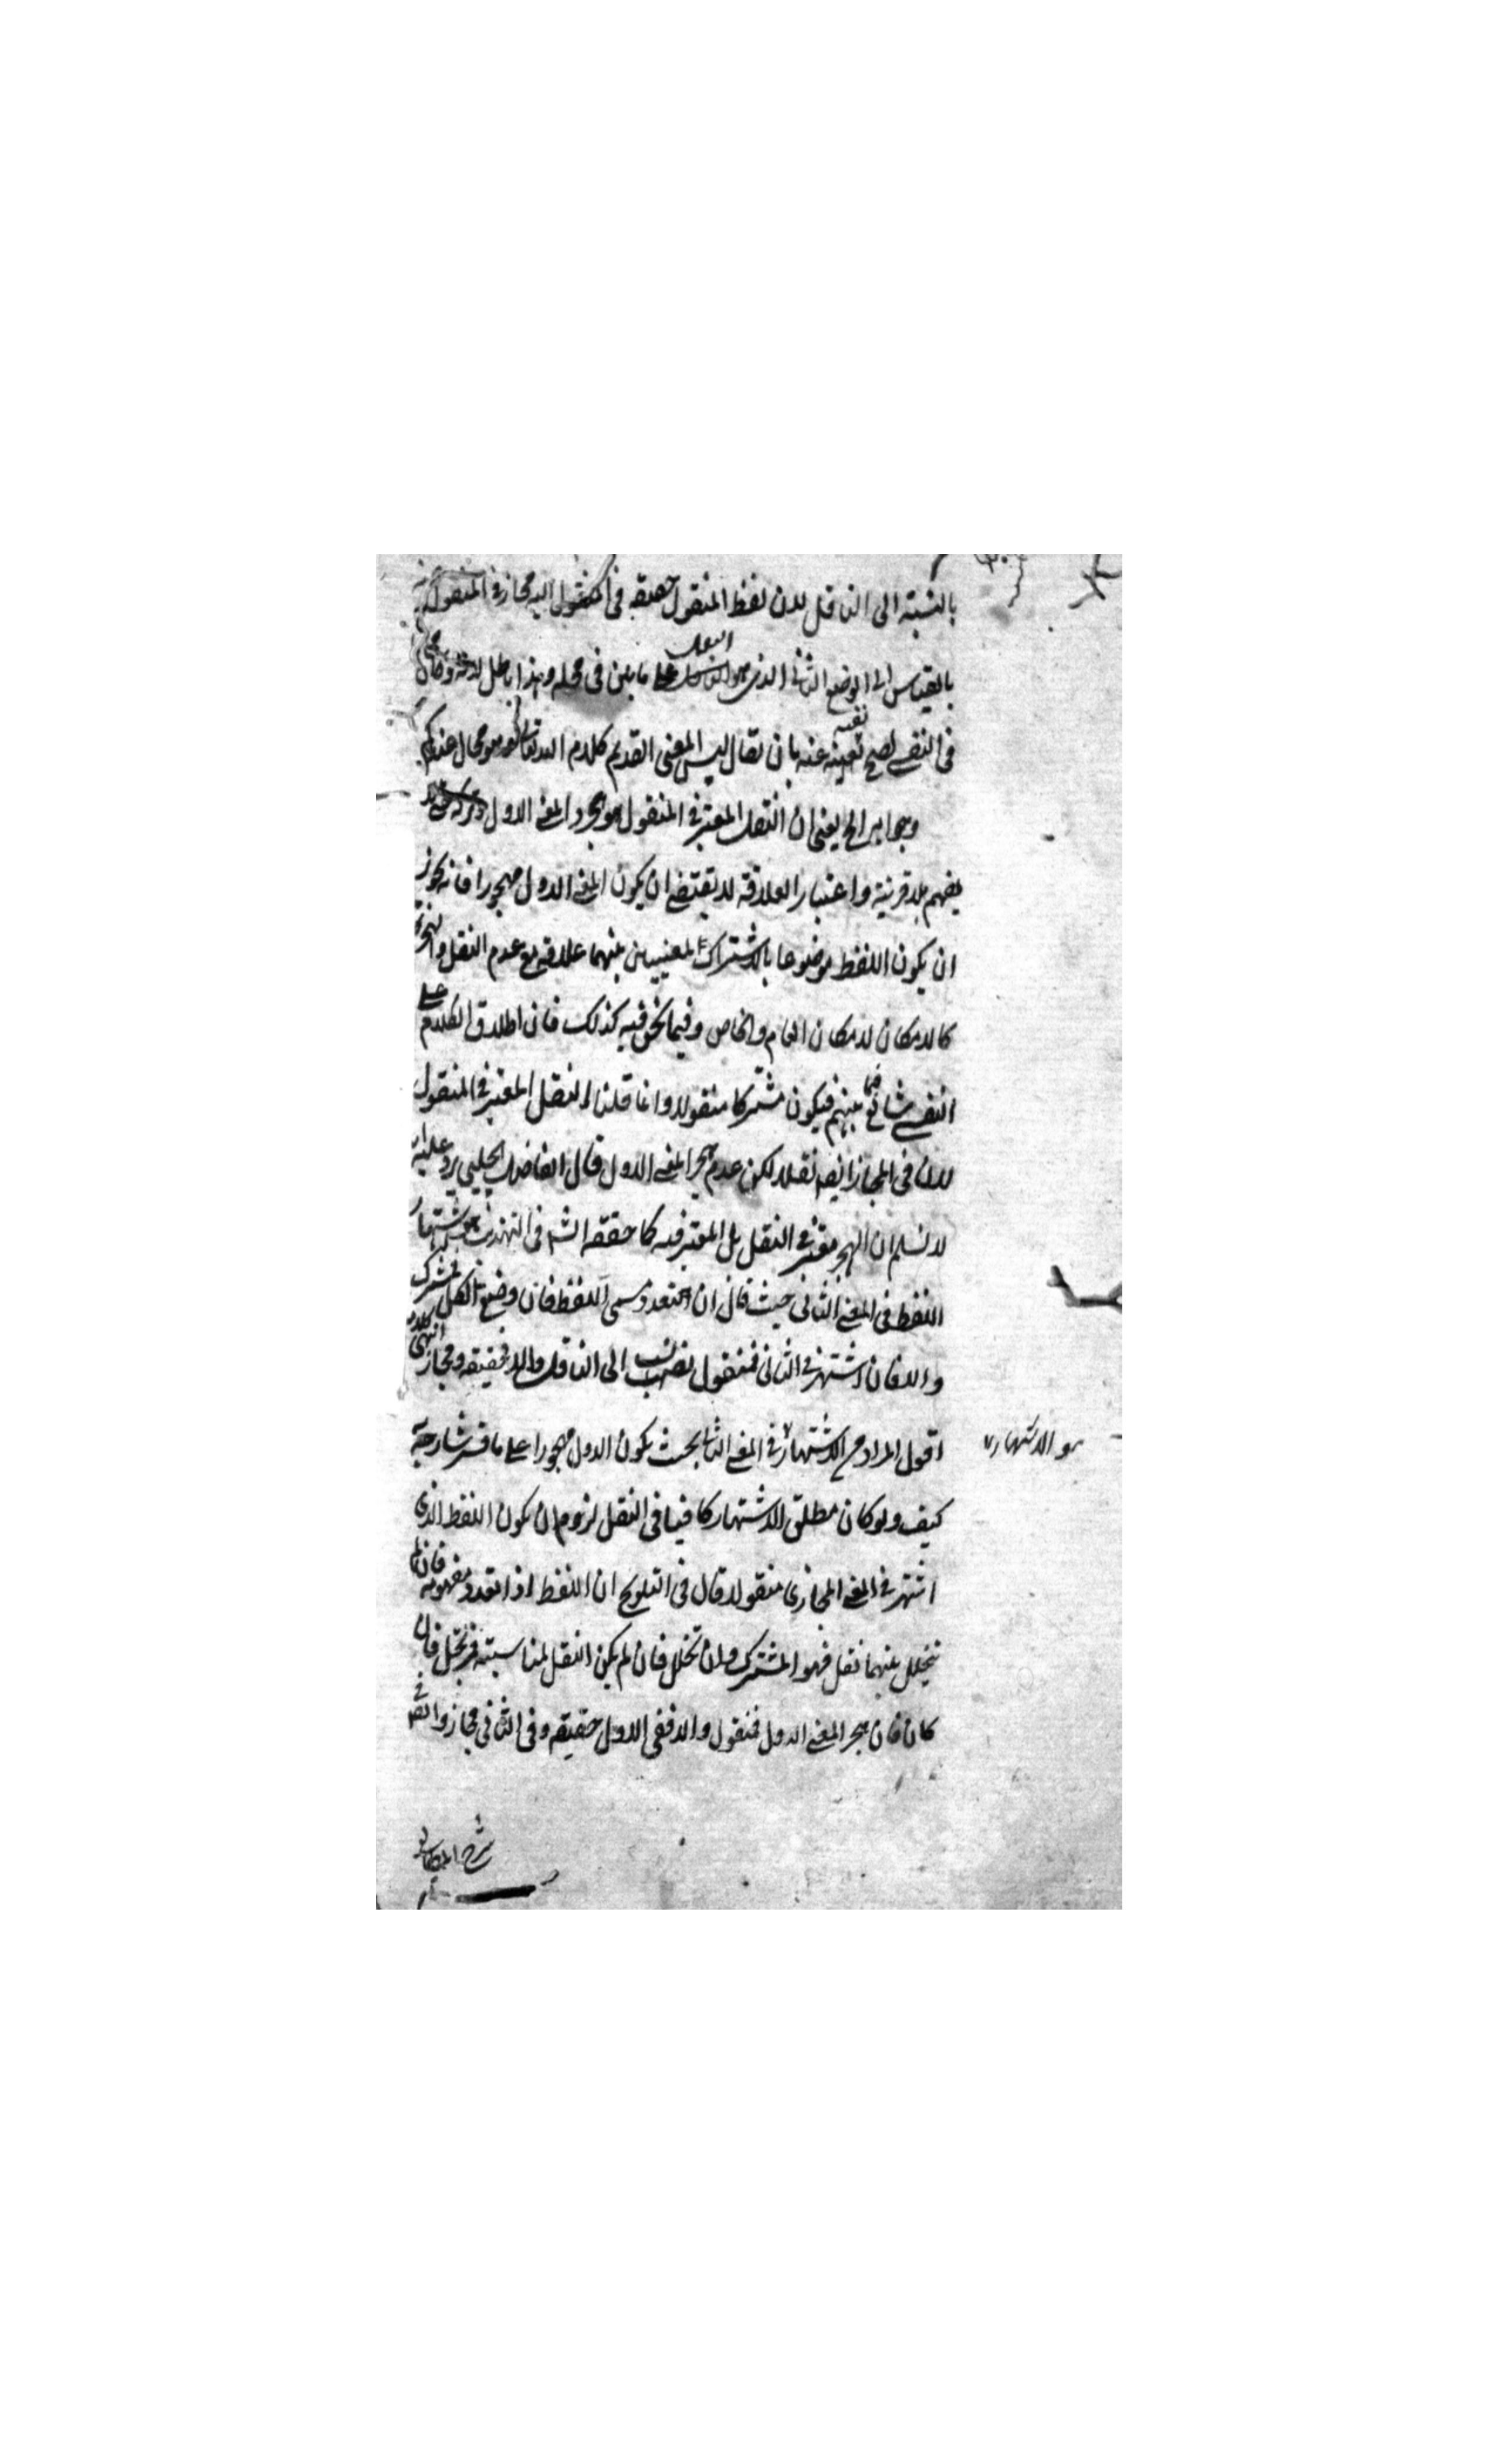 بالنسبة الى الناقل لان لفظ المنقول حقيقة فى المنقول اليه مجاز فى المنقول
بالقياس الى الوضع الثانى الذى هو النقل على ما بين فى محله وهذا باطل لانه
فى النفسى لصح نفيه عنه بان يقال ليس المعنى القديم كلام الله تعالى وهو محال عندكم
وجوابه الخ يعنى ان النقل المعتبر فى المنقول هو هجر المعنى الاول
يفهم بلا قرينة واعتبار العلاقة لا يقتضى ان يكون المعنى الاول مهجورا فانه يجوز
ان يكون اللفظ موضوعا بالاشتراك لمعنيين بينهما علاقة مع عدم النقل والهجر
كالامكان لامكان العام والخاص وفيما نحن فيه كذلك فان اطلاق الكلام على
النفسى شائع فيما بينهم فيكون مشتركا منقولا وانما قلنا النقل المعتبر فى المنقول
لان فى المجاز ايضا نقلا لكن عدم هجر المعنى الاول قال الفاضل الجلبى يرد عليه
لا نسلم ان الهجر معتبر فى النقل بل المعتبر فيه كما حققه الشه فى التهذيب اشتهار
اللفظ فى المعنى الثانى حيث قال ان تعدد مسمى اللفظ فان وضع لكل فمشترك
والا فان اشتهر فى الثانى فمنقول ينسب الى الناقل والا فحقيقة ومجاز انتهى كلامه
اقول المراد من الاشتهار فى المعنى الثانى بحيث يكون الاول مهجورا على ما فسر شارحه
هو الاشتهار
كيف ولو كان مطلق الاشتهار كافيا فى النقل لزم ان يكون اللفظ الذى
اشتهر فى المعنى المجازى منقولا قال فى التلويح ان اللفظ اذا تعدد مفهومه فان لم
يتخلل بينهما نقل فهو المشترك وان تخلل فان لم يكن النقل لمناسبة فمرتجل فان
كان فان هجر المعنى الاول فمنقول والا ففى الاول حقيقة وفى الثانى مجاز وايضا فى
شرح